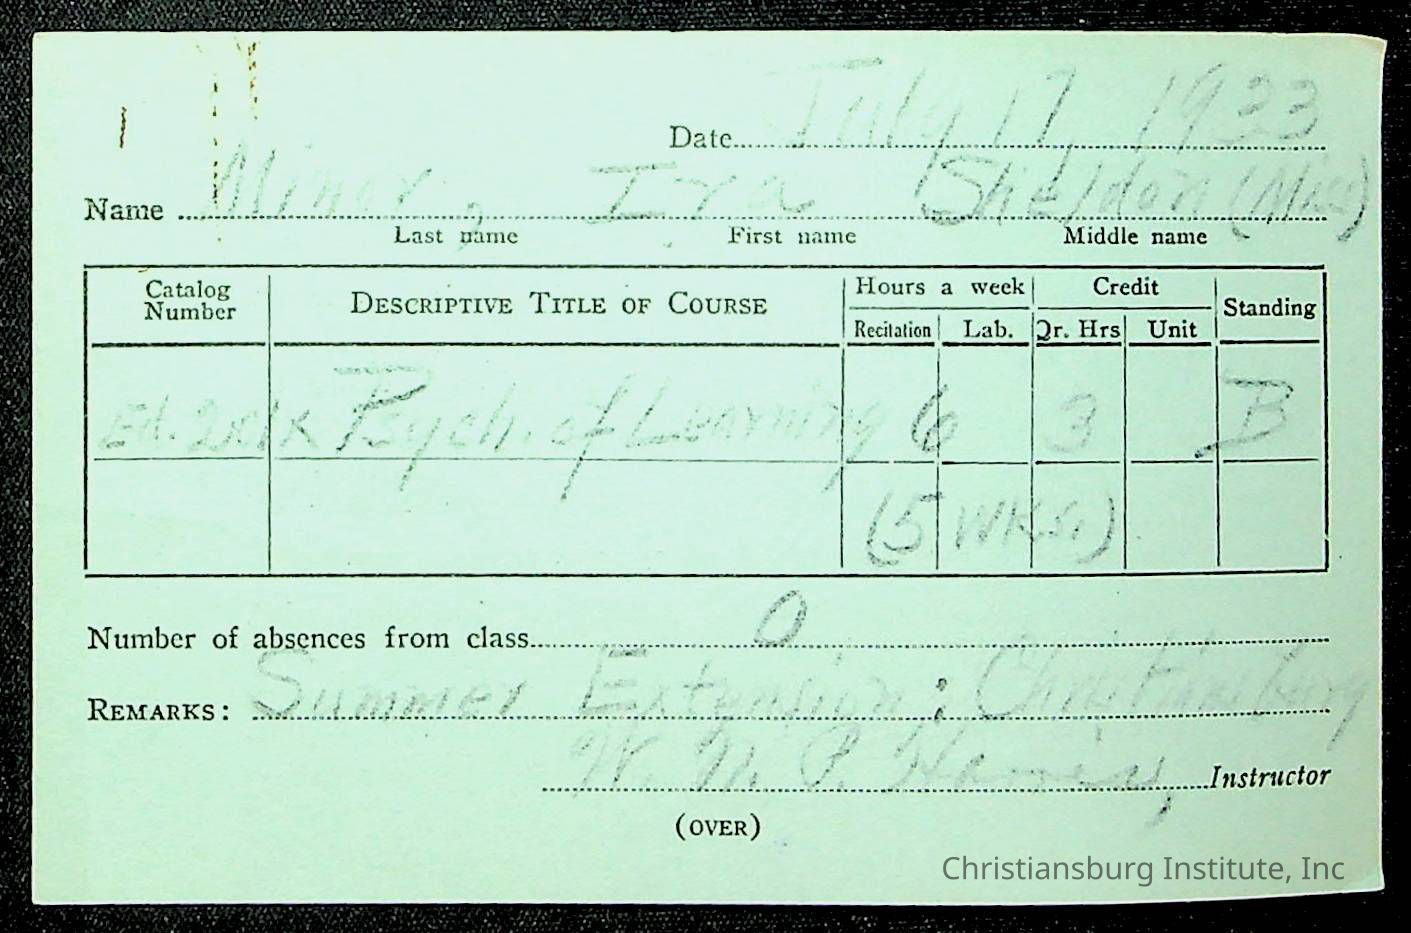 Date July 17, 1933
Name Minor, Ira Sheldon (Miss)
Last name First name Middle name
Catalog Number DESCRIPTIVE TITLE OF COURSE Hours a week Credit Standing
Recitation Lab. Qr. Hrs Unit
Ed. Psych. of Learning 6 3 B
(5 WKS.)
Number of absences from class 0
REMARKS: Summer Extension; Christiansburg
W. M. P. Instructor
(OVER)
Christiansburg Institute, Inc